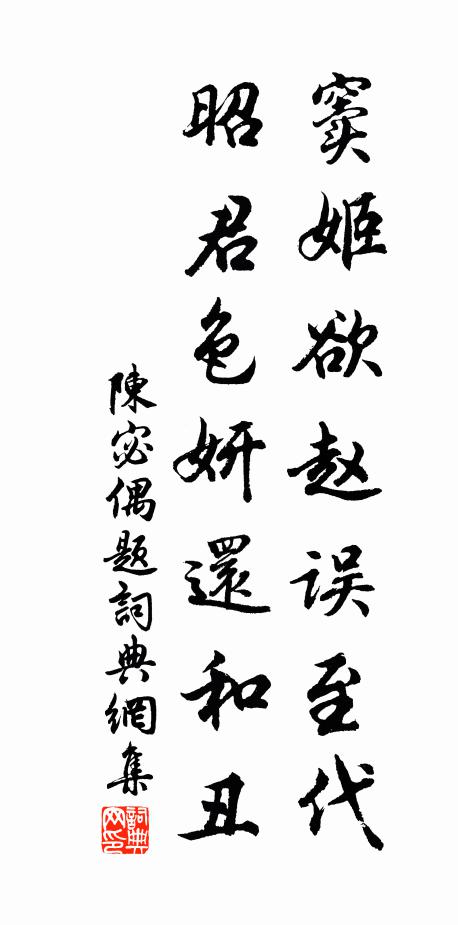 窦姬欲赵误至代
昭君色妍還和丑
陳宓偶題詞典網集
詞典网印